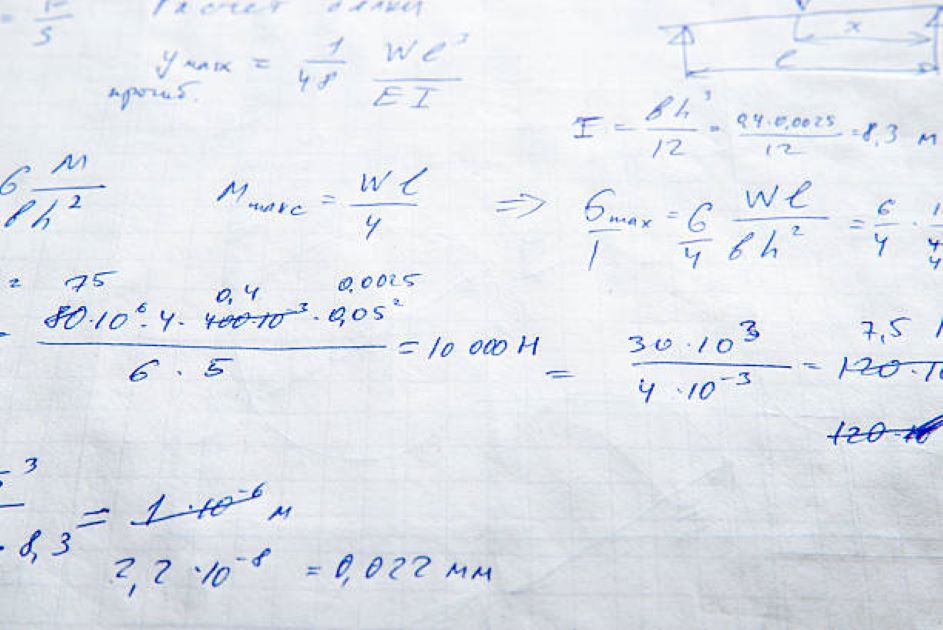 Расчет балки
5
y max = 1/48 Wl³/EI
прогиб.
x
l
I = bh³/12 = 0,4·0,0025/12 = 8,3 м
6 M/bh²
M макс = Wl/4 => σ max = 6/4 Wl/bh² = 6/4 ·
= 75 0,4 0,0025
80·10⁶·4·400·10⁻³·0,05² / 6·5 = 10 000 Н
= 30·10³ / 4·10⁻³ = 7,5 120·10
120·10
3
· 8,3 = 1·10⁻⁶ м
2,2·10⁻⁸ = 0,022 мм